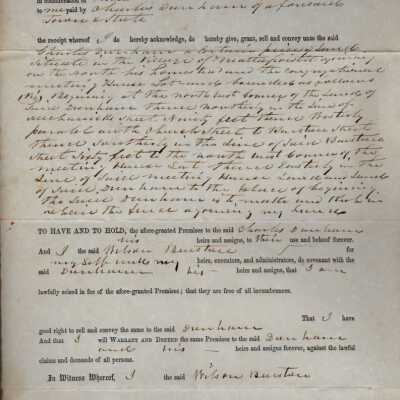 to me paid by Charles Dunham of aforesaid
Town & State
the receipt whereof I do hereby acknowledge, do hereby give, grant, sell and convey unto the said
Charles Dunham a certain piece of Land
Situate in the Village of Mattapoisett
on the North his homestead and the Congregational
meeting House Lot and bounded as follows
Beginning at the North East Corner of the Land of
Said Dunham Thence Northerly in the Line of
Mechanicks Street Ninety feet thence Westerly
parallel with Church Street to Barstow Street
Thence Southerly in the Line of Said Barstow
Street Sixty feet to the North West Corner of the
meeting House Lot Thence Easterly in the
Line of Said meeting House Land and Land
of Said Dunham to the place of beginning
The Said Dunham is to make and
the Land my Land
TO HAVE AND TO HOLD, the afore-granted Premises to the said Charles Dunham
his heirs and assigns, to their use and behoof forever.
And I the said Wilson Barstow for
my Self and my heirs, executors, and administrators, do covenant with the
said Dunham his heirs and assigns, that I am
lawfully seized in fee of the afore-granted Premises; that they are free of all incumbrances.
That I have
good right to sell and convey the same to the said Dunham
And that I will WARRANT AND DEFEND the same Premises to the said Dunham
and his heirs and assigns forever, against the lawful
claims and demands of all persons.
In Witness Whereof, I the said Wilson Barstow